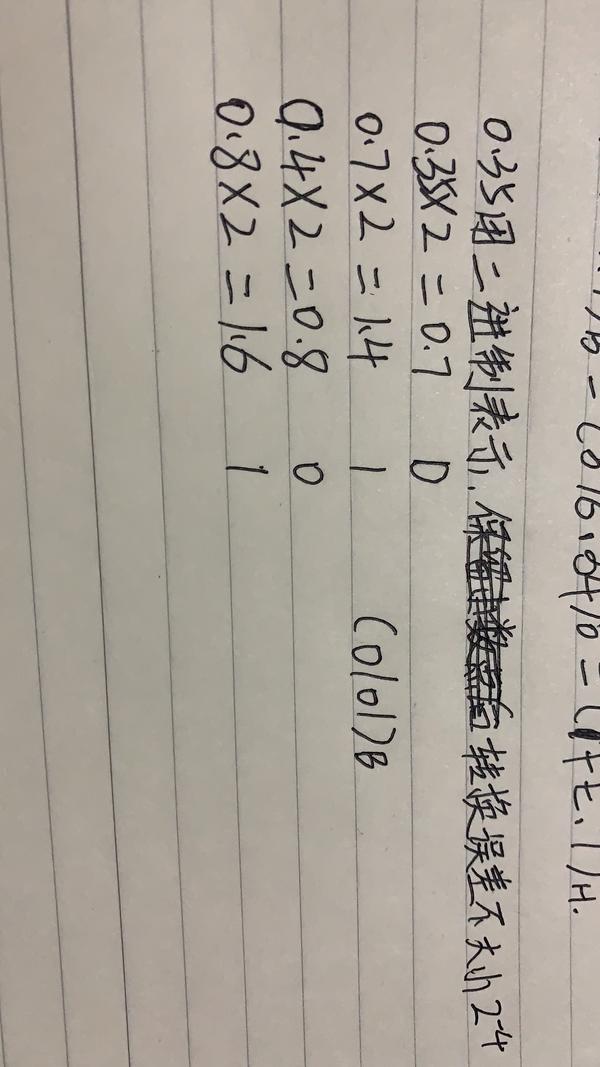 )B = (016.04)D = (
0.35用二进制表示、保留小数点后 转换误差不大小2⁻⁴
0.35×2=0.7 0
0.7×2=1.4 1 (0101)B
0.4×2=0.8 0
0.8×2=1.6 1